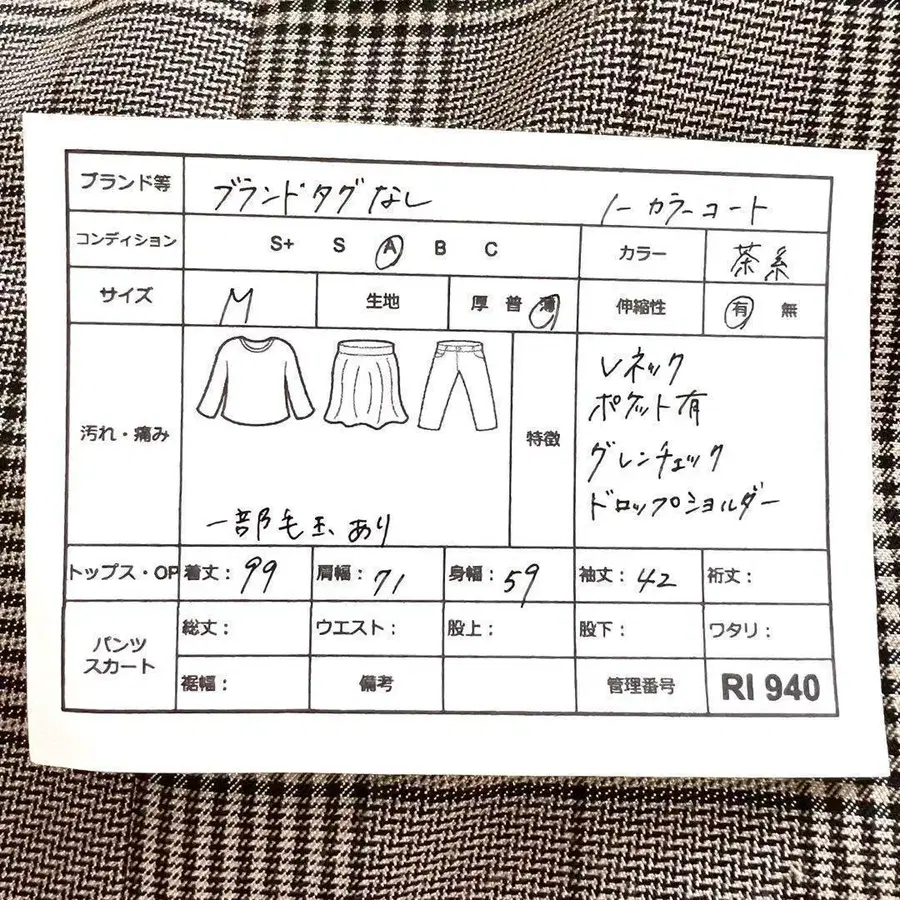 ブランド等 ブランドタグなし ノーカラーコート
コンディション S+ S A B C カラー 茶系
サイズ M 生地 厚 普 薄 伸縮性 有 無
汚れ・痛み 一部毛玉あり
特徴 Vネック
ポケット有
グレンチェック
ドロップショルダー
トップス・OP 着丈: 99 肩幅: 71 身幅: 59 袖丈: 42 裄丈:
パンツ
スカート
総丈: ウエスト: 股上: 股下: ワタリ:
裾幅: 備考 管理番号 RI 940